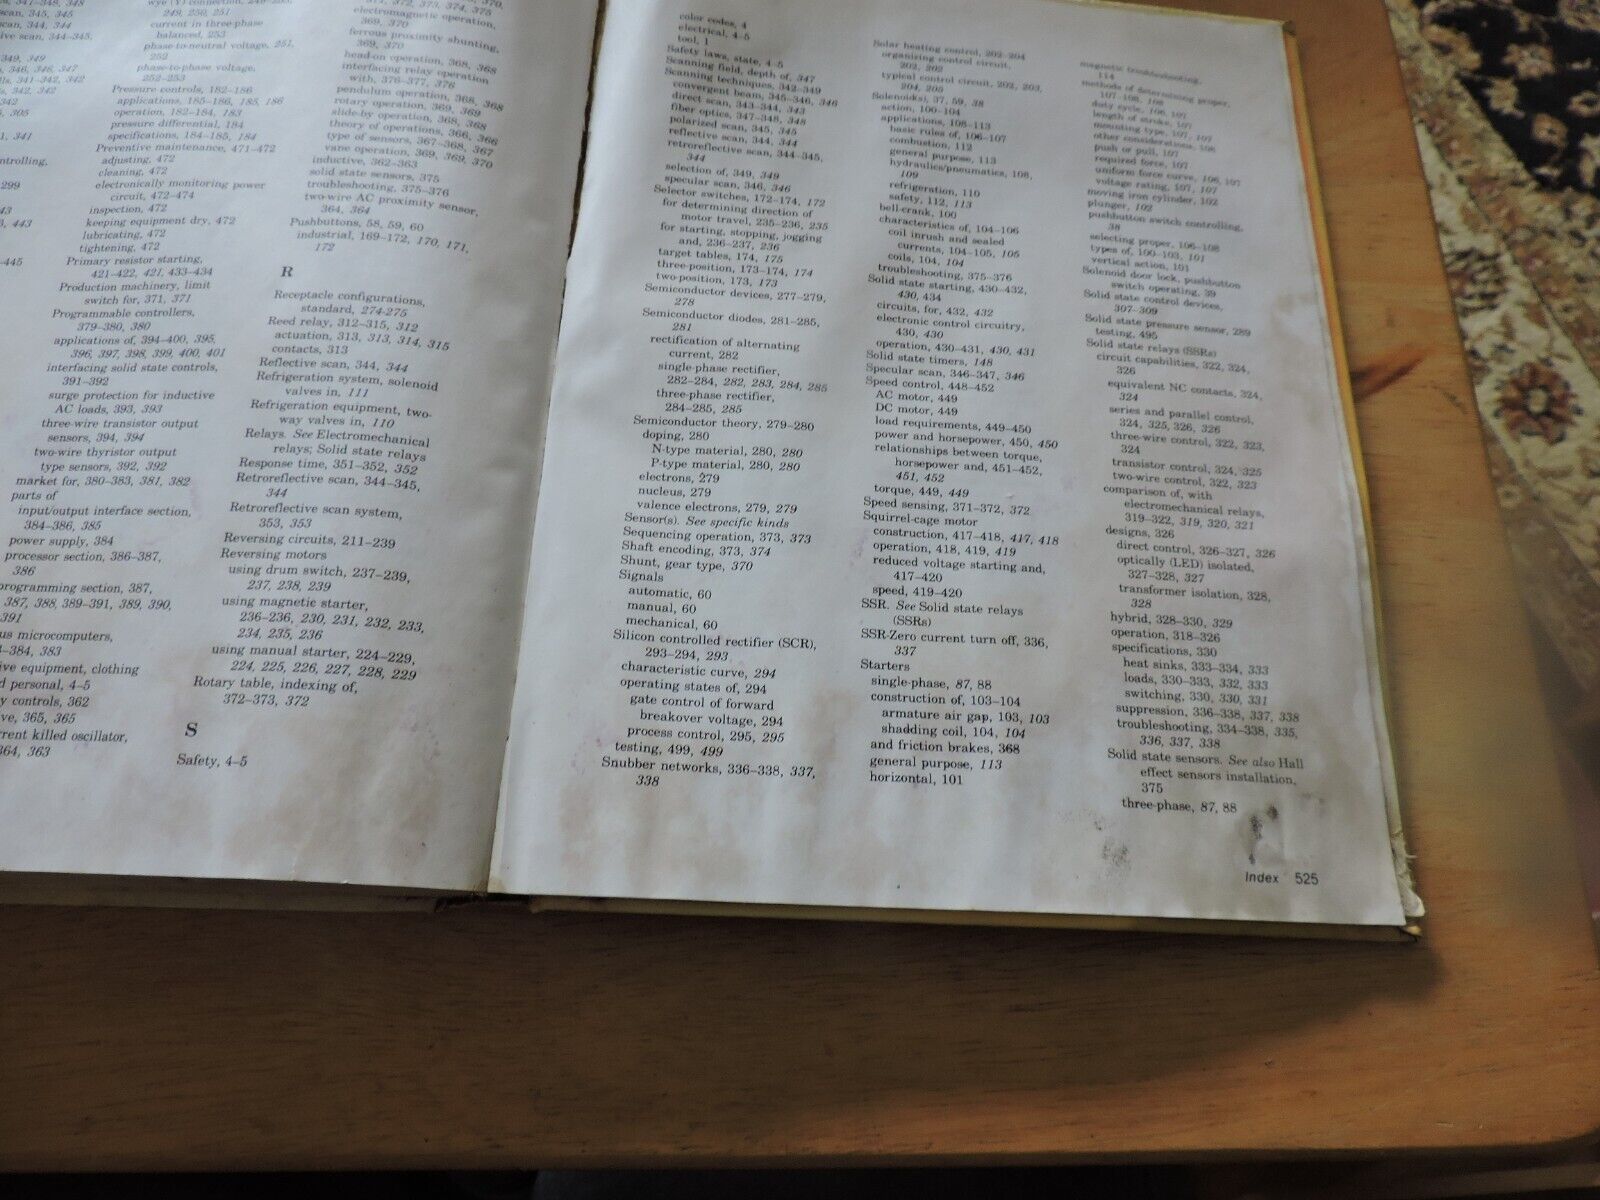 341-348, 348
scan, 345, 345
scan, 344, 344
ive scan, 344-345,
349, 349
s, 346, 346, 347
lls, 341-342, 342
s, 342, 342
342
5, 305
1, 341
ntrolling,
299
43
3, 443
-445
wye (Y) connection,
249, 250, 251
current in three-phase
balanced, 253
phase-to-neutral voltage, 251,
252
phase-to-phase voltage,
252-253
Pressure controls, 182-186
applications, 185-186, 185, 186
operation, 182-184, 183
pressure differential, 184
specifications, 184-185, 184
Preventive maintenance, 471-472
adjusting, 472
cleaning, 472
electronically monitoring power
circuit, 472-474
inspection, 472
keeping equipment dry, 472
lubricating, 472
tightening, 472
Primary resistor starting,
421-422, 421, 433-434
Production machinery, limit
switch for, 371, 371
Programmable controllers,
379-380, 380
applications of, 394-400, 395,
396, 397, 398, 399, 400, 401
interfacing solid state controls,
391-392
surge protection for inductive
AC loads, 393, 393
three-wire transistor output
sensors, 394, 394
two-wire thyristor output
type sensors, 392, 392
market for, 380-383, 381, 382
parts of
input/output interface section,
384-386, 385
power supply, 384
processor section, 386-387,
386
programming section, 387,
387, 388, 389-391, 389, 390,
391
us microcomputers,
-384, 383
ive equipment, clothing
d personal, 4-5
y controls, 362
ve, 365, 365
rrent killed oscillator,
364, 363
371, 372, 373, 374, 375
electromagnetic operation,
369, 370
ferrous proximity shunting,
369, 370
head-on operation, 368, 368
interfacing relay operation
with, 376-377, 376
pendulum operation, 368, 368
rotary operation, 369, 369
slide-by operation, 368, 368
theory of operations, 366, 366
type of sensors, 367-368, 367
vane operation, 369, 369, 370
inductive, 362-363
solid state sensors, 375
troubleshooting, 375-376
two-wire AC proximity sensor,
364, 364
Pushbuttons, 58, 59, 60
industrial, 169-172, 170, 171,
172
R
Receptacle configurations,
standard, 274-275
Reed relay, 312-315, 312
actuation, 313, 313, 314, 315
contacts, 313
Reflective scan, 344, 344
Refrigeration system, solenoid
valves in, 111
Refrigeration equipment, two-
way valves in, 110
Relays. See Electromechanical
relays; Solid state relays
Response time, 351-352, 352
Retroreflective scan, 344-345,
344
Retroreflective scan system,
353, 353
Reversing circuits, 211-239
Reversing motors
using drum switch, 237-239,
237, 238, 239
using magnetic starter,
236-236, 230, 231, 232, 233,
234, 235, 236
using manual starter, 224-229,
224, 225, 226, 227, 228, 229
Rotary table, indexing of,
372-373, 372
S
Safety, 4-5
color codes, 4
electrical, 4-5
tool, 1
Safety laws, state, 4-5
Scanning field, depth of, 347
Scanning techniques, 342-349
convergent beam, 345-346, 346
direct scan, 343-344, 343
fiber optics, 347-348, 348
polarized scan, 345, 345
reflective scan, 344, 344
retroreflective scan, 344-345,
344
selection of, 349, 349
specular scan, 346, 346
Selector switches, 172-174, 172
for determining direction of
motor travel, 235-236, 235
for starting, stopping, jogging
and, 236-237, 236
target tables, 174, 175
three-position, 173-174, 174
two-position, 173, 173
Semiconductor devices, 277-279,
278
Semiconductor diodes, 281-285,
281
rectification of alternating
current, 282
single-phase rectifier,
282-284, 282, 283, 284, 285
three-phase rectifier,
284-285, 285
Semiconductor theory, 279-280
doping, 280
N-type material, 280, 280
P-type material, 280, 280
electrons, 279
nucleus, 279
valence electrons, 279, 279
Sensor(s). See specific kinds
Sequencing operation, 373, 373
Shaft encoding, 373, 374
Shunt, gear type, 370
Signals
automatic, 60
manual, 60
mechanical, 60
Silicon controlled rectifier (SCR),
293-294, 293
characteristic curve, 294
operating states of, 294
gate control of forward
breakover voltage, 294
process control, 295, 295
testing, 499, 499
Snubber networks, 336-338, 337,
338
Solar heating control, 202-204
organizing control circuit,
202, 202
typical control circuit, 202, 203,
204, 205
Solenoid(s), 37, 59, 38
action, 100-104
applications, 108-113
basic rules of, 106-107
combustion, 112
general purpose, 113
hydraulics/pneumatics, 108,
109
refrigeration, 110
safety, 112, 113
bell-crank, 100
characteristics of, 104-106
coil inrush and sealed
currents, 104-105, 105
coils, 104, 104
troubleshooting, 375-376
Solid state starting, 430-432,
430, 434
circuits, for, 432, 432
electronic control circuitry,
430, 430
operation, 430-431, 430, 431
Solid state timers, 148
Specular scan, 346-347, 346
Speed control, 448-452
AC motor, 449
DC motor, 449
load requirements, 449-450
power and horsepower, 450, 450
relationships between torque,
horsepower and, 451-452,
451, 452
torque, 449, 449
Speed sensing, 371-372, 372
Squirrel-cage motor
construction, 417-418, 417, 418
operation, 418, 419, 419
reduced voltage starting and,
417-420
speed, 419-420
SSR. See Solid state relays
(SSRs)
SSR-Zero current turn off, 336,
337
Starters
single-phase, 87, 88
construction of, 103-104
armature air gap, 103, 103
shadding coil, 104, 104
and friction brakes, 368
general purpose, 113
horizontal, 101
magnetic troubleshooting,
114
methods of determining proper,
107-108, 108
duty cycle, 106, 107
length of stroke, 107
mounting type, 107, 107
other considerations, 108
push or pull, 107
required force, 107
uniform force curve, 106, 107
voltage rating, 107, 107
moving iron cylinder, 102
plunger, 102
pushbutton switch controlling,
38
selecting proper, 106-108
types of, 100-103, 101
vertical action, 101
Solenoid door lock, pushbutton
switch operating, 39
Solid state control devices,
307-309
Solid state pressure sensor, 289
testing, 495
Solid state relays (SSRs)
circuit capabilities, 322, 324,
326
equivalent NC contacts, 324,
324
series and parallel control,
324, 325, 326, 326
three-wire control, 322, 323,
324
transistor control, 324, 325
two-wire control, 322, 323
comparison of, with
electromechanical relays,
319-322, 319, 320, 321
designs, 326
direct control, 326-327, 326
optically (LED) isolated,
327-328, 327
transformer isolation, 328,
328
hybrid, 328-330, 329
operation, 318-326
specifications, 330
heat sinks, 333-334, 333
loads, 330-333, 332, 333
switching, 330, 330, 331
suppression, 336-338, 337, 338
troubleshooting, 334-338, 335,
336, 337, 338
Solid state sensors. See also Hall
effect sensors installation,
375
three-phase, 87, 88
Index 525